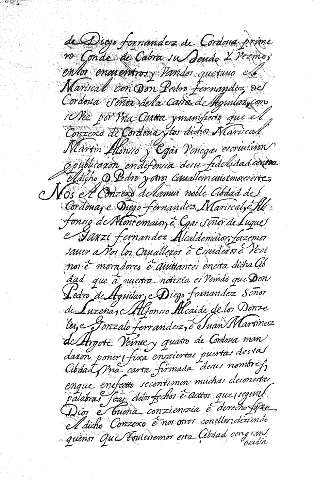 de Diego fernandez de Cordova prime
ro Conde de Cabra su deudo i Vremos
en los enquentros y Vandos que tuvo el
Mariscal con Don Pedro fernandez de
Cordova Señor de la Casa de Aguilar, con
se Ve por Vna Carta y manifiesto que el
Conzexo de Cordova y los dichos Mariscal
Martin Alonso y Egas Venegas escrivieron
y publicaron en defensa de su fidelidad contra
el dicho D. Pedro y otros cavalleros
Nos el Conzexo de la mui noble Cibdad de
Cordova, e Diego fernandez Mariscal, e Al
fonso de Montemaior, e Egas Señor de Luque
e Garzi fernandez Alcalde maior, fazemos
saver a Vos los Cavalleros e Escuderos e Vezi
nos e moradores e avitantes en esta dicha Cib
dad que a nuestra notizia es Venido que Don
Pedro de Aguilar, e Diego fernandez Señor
de Luzena, e Alfonso Alcaide de los Donze
les, e Gonzalo ferrandez, e Juan Martinez
de Argote Veinte y quatro de Cordova man
daron poner i fixar en ziertas puertas desta
Cibdad Vna carta firmada de sus nombres,
en que en efecto se contienen muchas desonestas
palabras feas, dellos fechos e autos que segund
Dios e buena conzienzia e derecho fizo
el dicho Conzexo e nos otros con ellos, diziendo
queños que bolviesemos esta Cibdad en ganan